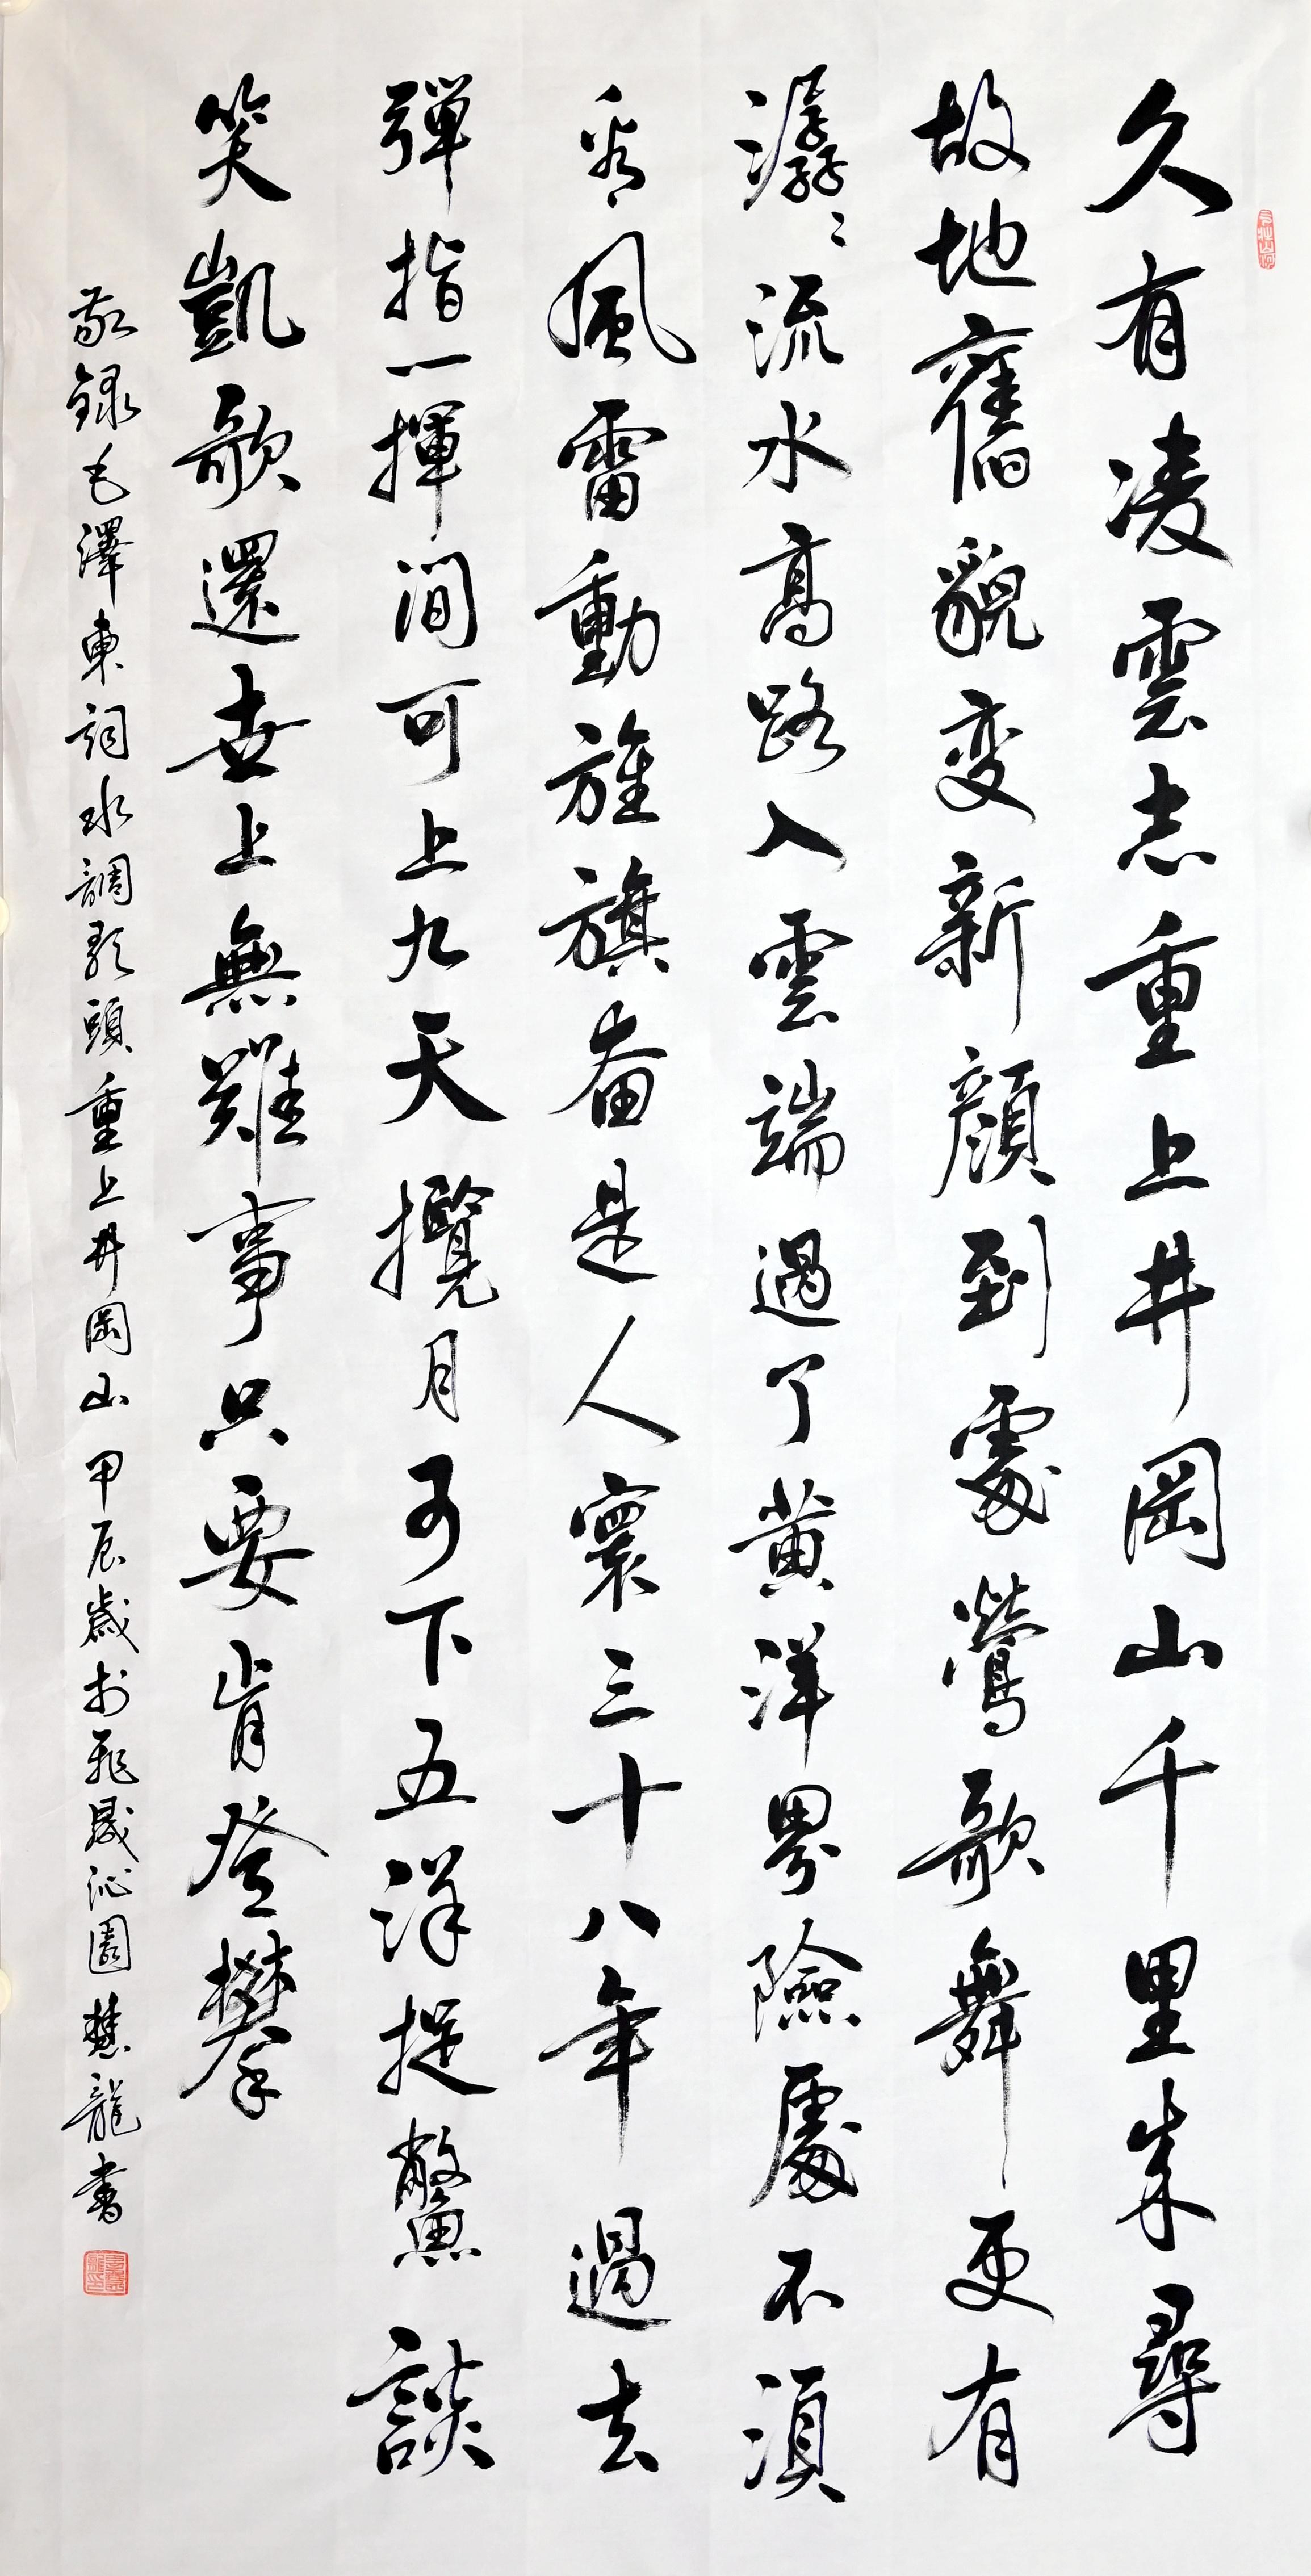 久有凌雲志重上井岡山千里来尋
故地舊貌变新顔到處鶯歌舞更有
潺〻流水高路入雲端過了黄洋界險處不須
看風雷動旌旗奋是人寰三十八年過去
彈指一揮间可上九天攬月可下五洋捉鱉談
笑凱歌還世上無難事只要肯登攀
敬録毛澤東詞水調歌頭重上井岡山甲辰歲於飛晟沁園慧龍書